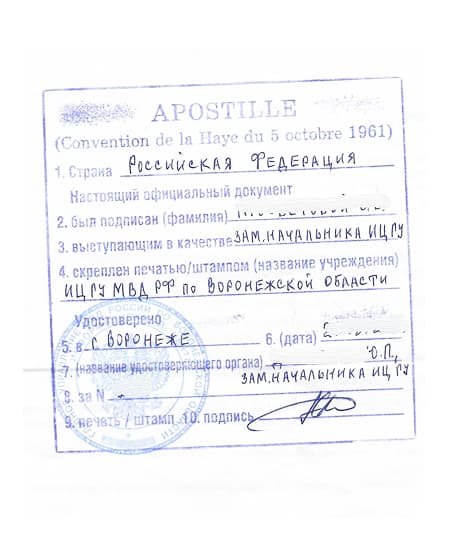 APOSTILLE
(Convention de la Haye du 5 octobre 1961)
1. Страна Российская Федерация
Настоящий официальный документ
2. был подписан (фамилия)
3. выступающим в качестве зам.начальника ИЦ ГУ
4. скреплен печатью/штампом (название учреждения)
ИЦ ГУ МВД РФ по Воронежской области
Удостоверено
5. в г. Воронеже 6. (дата)
7. (название удостоверяющего органа) О.П.,
зам.начальника ИЦ ГУ
8. за N -
9. печать / штамп 10. подпись